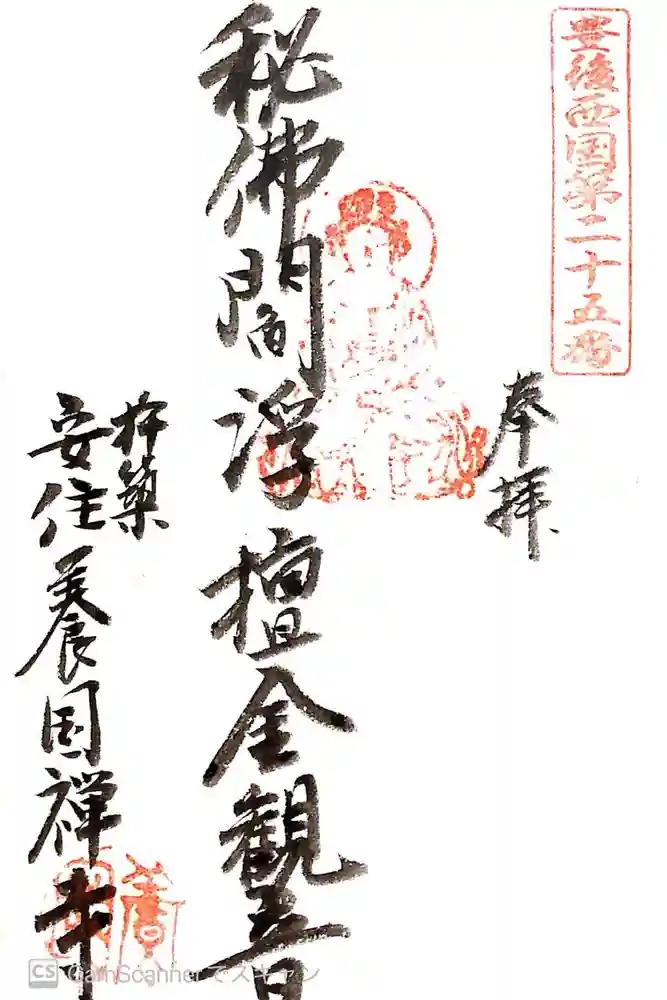 豊後西国第二十五番
奉拝
秘佛閻浮檀金観音
杵築
安住養国禅寺
CS CamScannerでスキャン